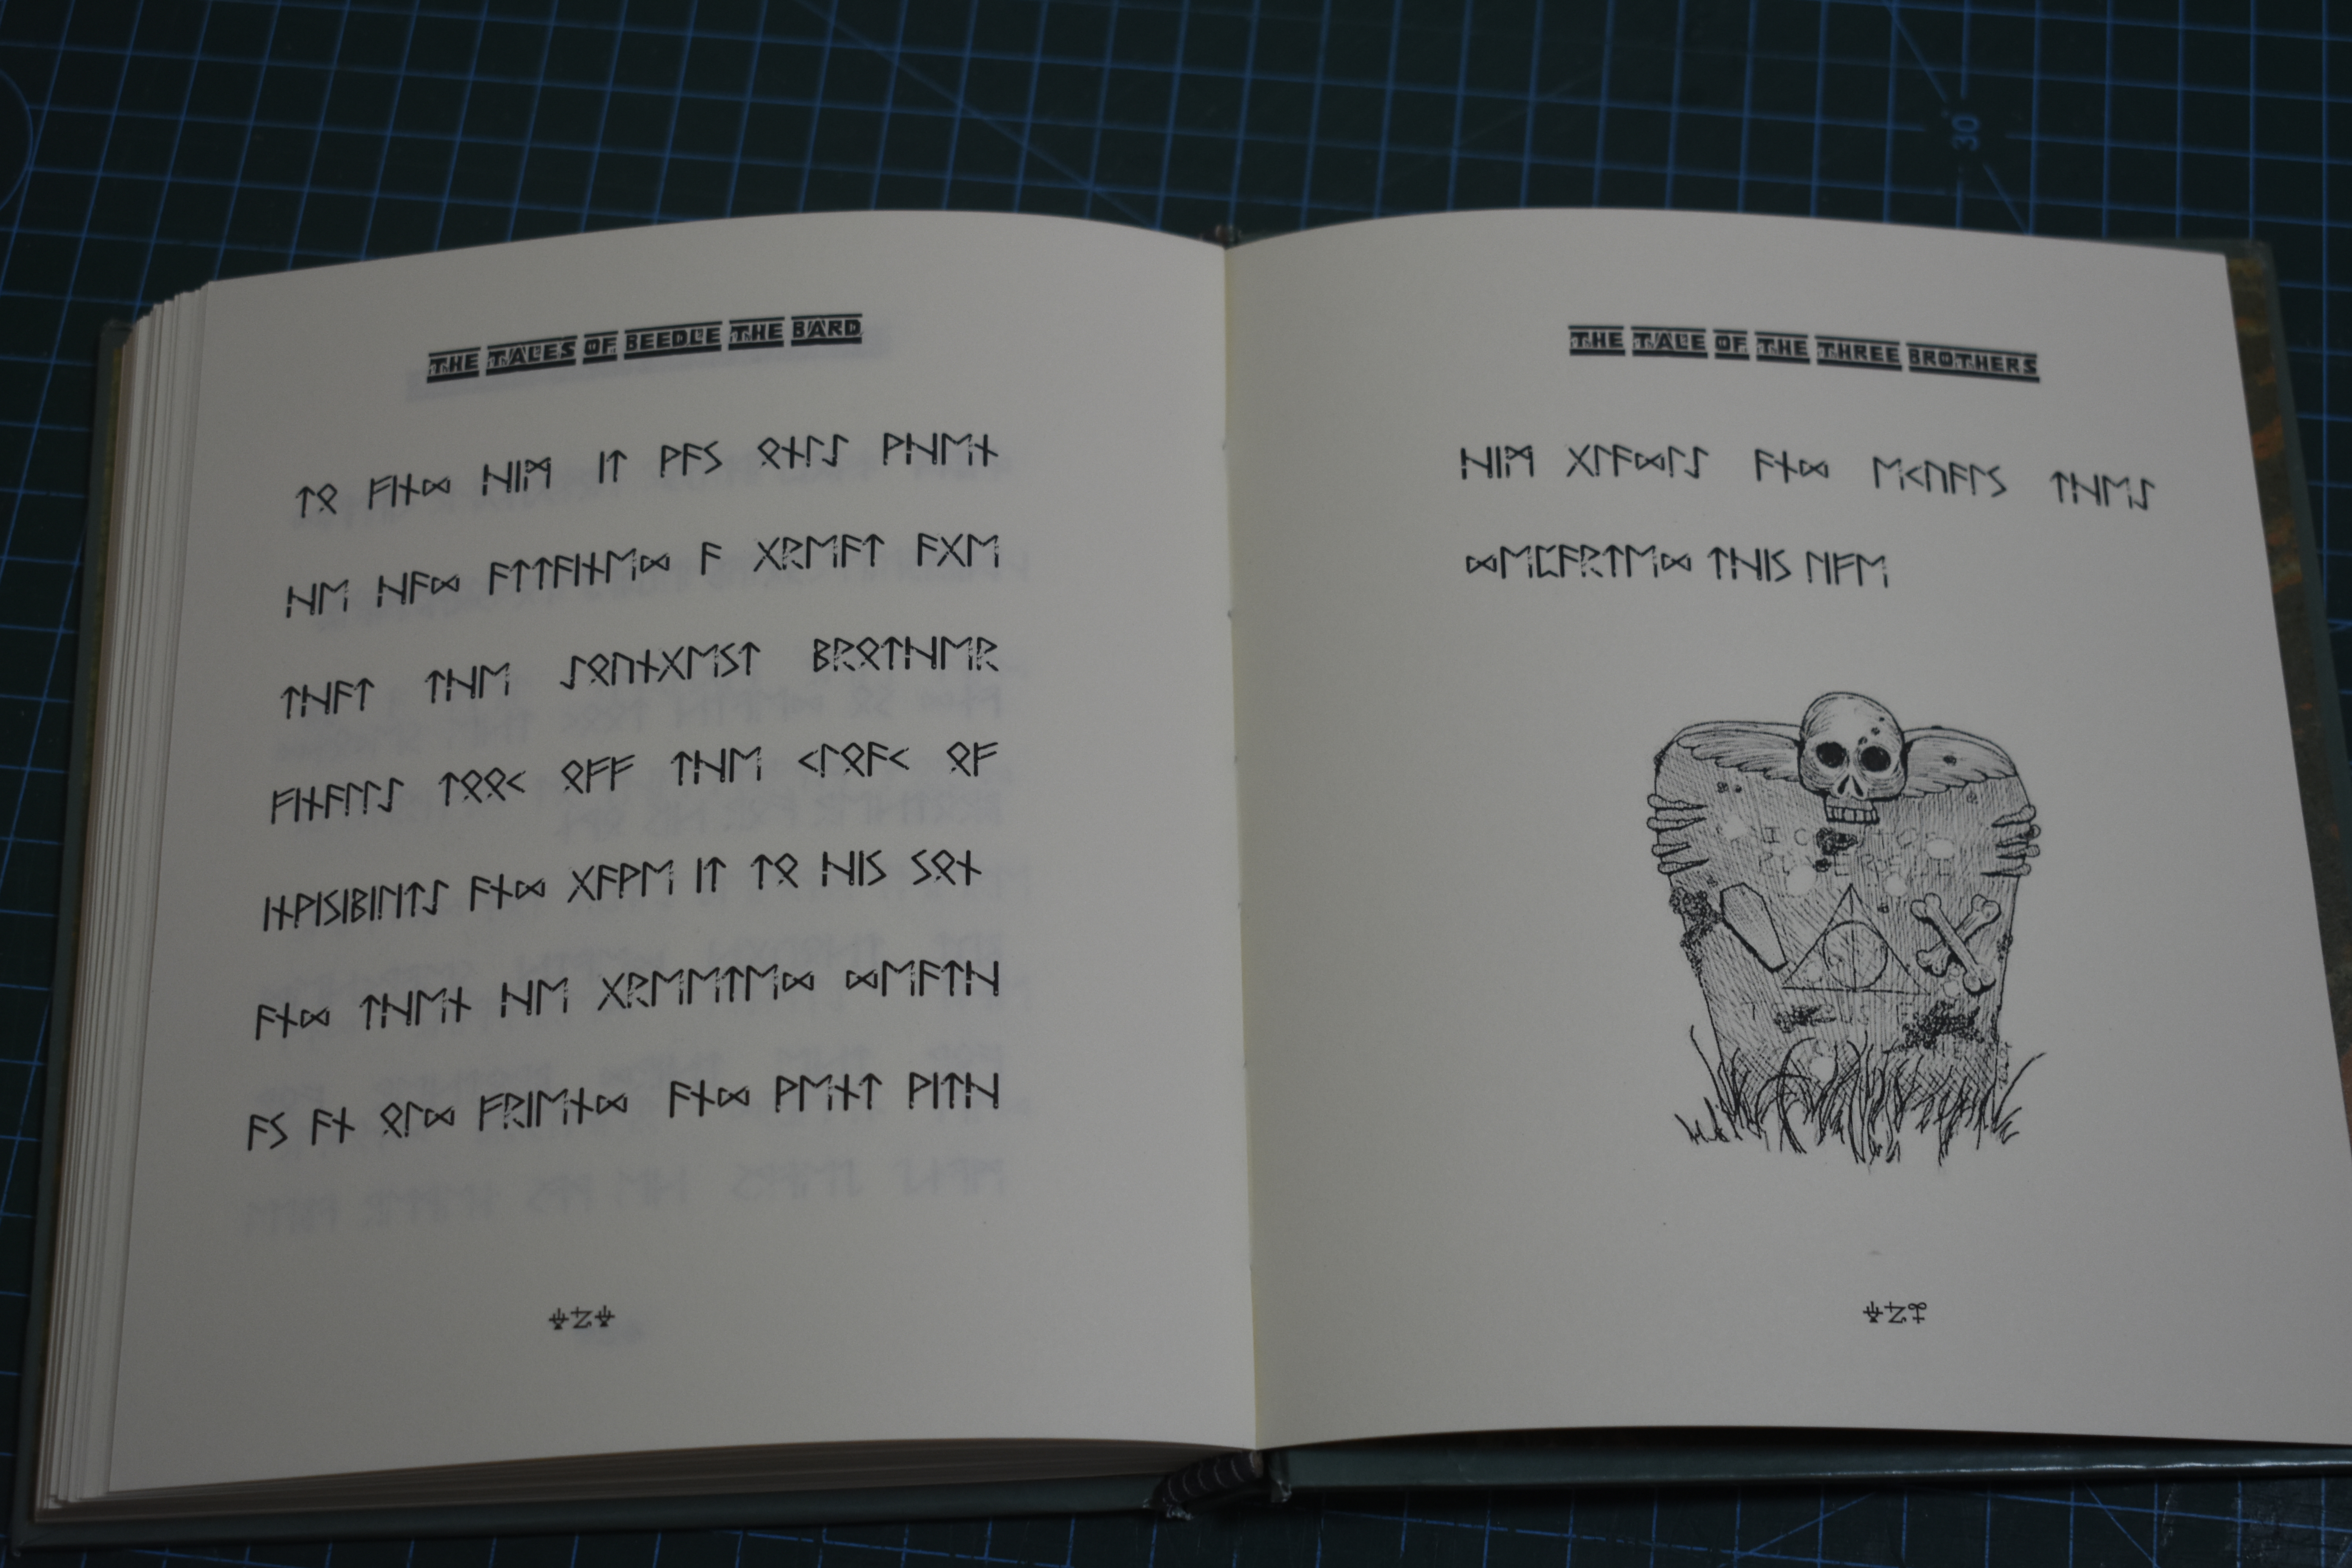 THE TALES OF BEEDLE THE BARD
ᛏᛟ ᚠᛁᚾᛞ ᚺᛁᛗ ᛁᛏ ᚹᚨᛊ ᛟᚾᛚᛇ ᚹᚺᛖᚾ
ᚺᛖ ᚺᚨᛞ ᚨᛏᛏᚨᛁᚾᛖᛞ ᚨ ᚷᚱᛖᚨᛏ ᚨᚷᛖ
ᛏᚺᚨᛏ ᛏᚺᛖ ᛇᛟᚢᚾᚷᛖᛊᛏ ᛒᚱᛟᛏᚺᛖᚱ
ᚠᛁᚾᚨᛚᛚᛇ ᛏᛟᛟᚲ ᛟᚠᚠ ᛏᚺᛖ ᚲᛚᛟᚨᚲ ᛟᚠ
ᛁᚾᚹᛁᛊᛁᛒᛁᛚᛁᛏᛇ ᚨᚾᛞ ᚷᚨᚹᛖ ᛁᛏ ᛏᛟ ᚺᛁᛊ ᛊᛟᚾ
ᚨᚾᛞ ᛏᚺᛖᚾ ᚺᛖ ᚷᚱᛖᛖᛏᛖᛞ ᛞᛖᚨᛏᚺ
ᚨᛊ ᚨᚾ ᛟᛚᛞ ᚠᚱᛁᛖᚾᛞ ᚨᚾᛞ ᚹᛖᚾᛏ ᚹᛁᛏᚺ
THE TALE OF THE THREE BROTHERS
ᚺᛁᛗ ᚷᛚᚨᛞᛚᛇ ᚨᚾᛞ ᛖᚲᚢᚨᛚᛊ ᛏᚺᛖᛇ
ᛞᛖᛈᚨᚱᛏᛖᛞ ᛏᚺᛁᛊ ᛚᛁᚠᛖ
30